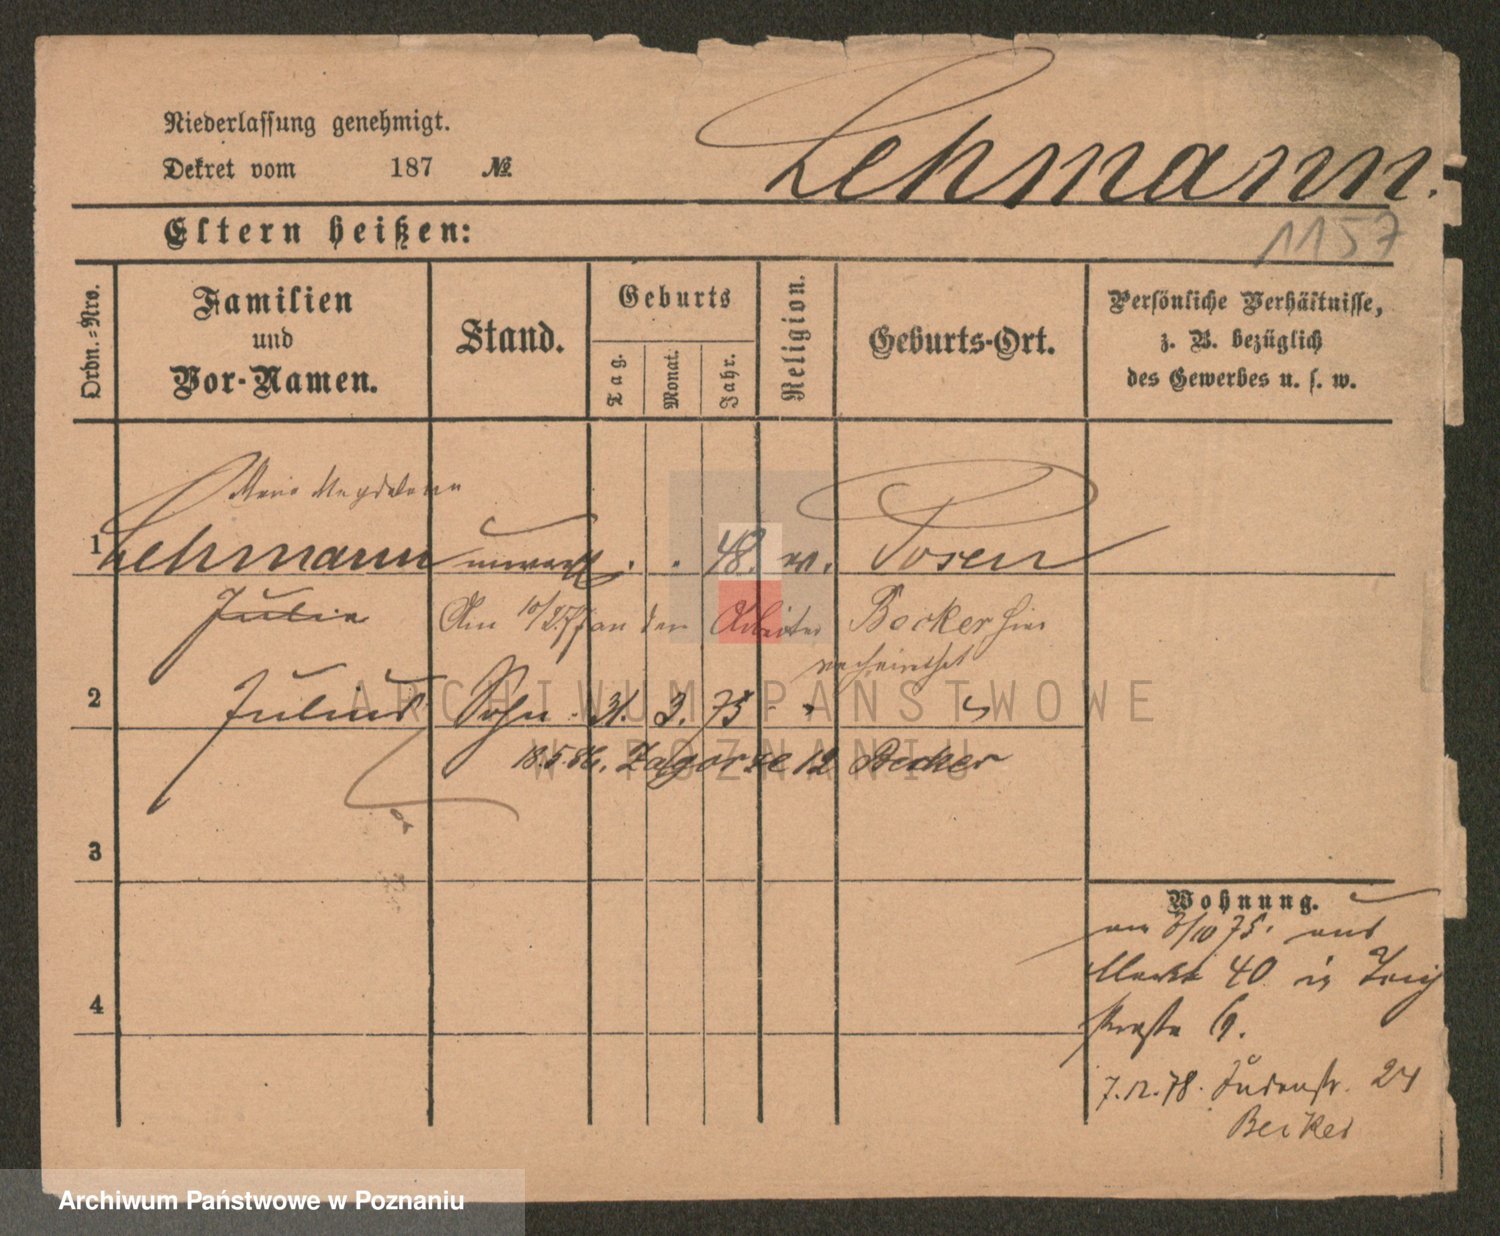 Lehmann.
Niederlassung genehmigt.
Dekret vom 187 №
1157
Eltern heißen:
Ordn.-Nro.
Familien
und
Vor-Namen.
Stand.
Geburts
Tag.
Monat.
Jahr.
Religion.
Geburts-Ort.
Persönliche Verhältnisse,
z. B. bezüglich
des Gewerbes u. s. w.
Marie Magdalena
1 Lehmann unverh. 48. ev. Posen
Julie Am an den Arbeiter Becker hier
verheirathet
2 Julius Sohn 31. 3. 75 " "
18.5.86. Zagorze 12 Becker
3
4
Wohnung.
am 3/10 75. aus
Markt 40 in Teich
straße 6.
7.12.78. Judenstr. 24
Becker
ARCHIWUM PAŃSTWOWE
W POZNANIU
Archiwum Państwowe w Poznaniu